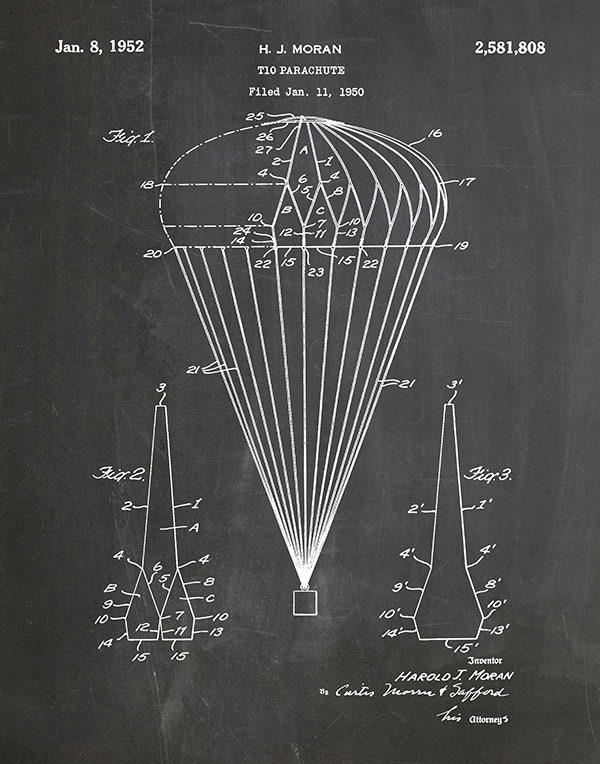 Jan. 8, 1952
H. J. MORAN
2,581,808
T10 PARACHUTE
Filed Jan. 11, 1950
Fig. 1.
25
26
27
16
A
2
1
18
4
6
4
17
5
B
B
C
10
7
10
24
12
11
13
14
20
19
22
15
23
15
22
21
21
3
3'
Fig. 2.
Fig. 3.
2
1
2'
1'
A
4
6
4
4'
4'
5
B
8
9'
8'
9
C
10
7
10
10'
10'
14
12
11
13
14'
13'
15
15
15'
Inventor
HAROLD J. MORAN
By Curtis Morris & Safford
his Attorneys